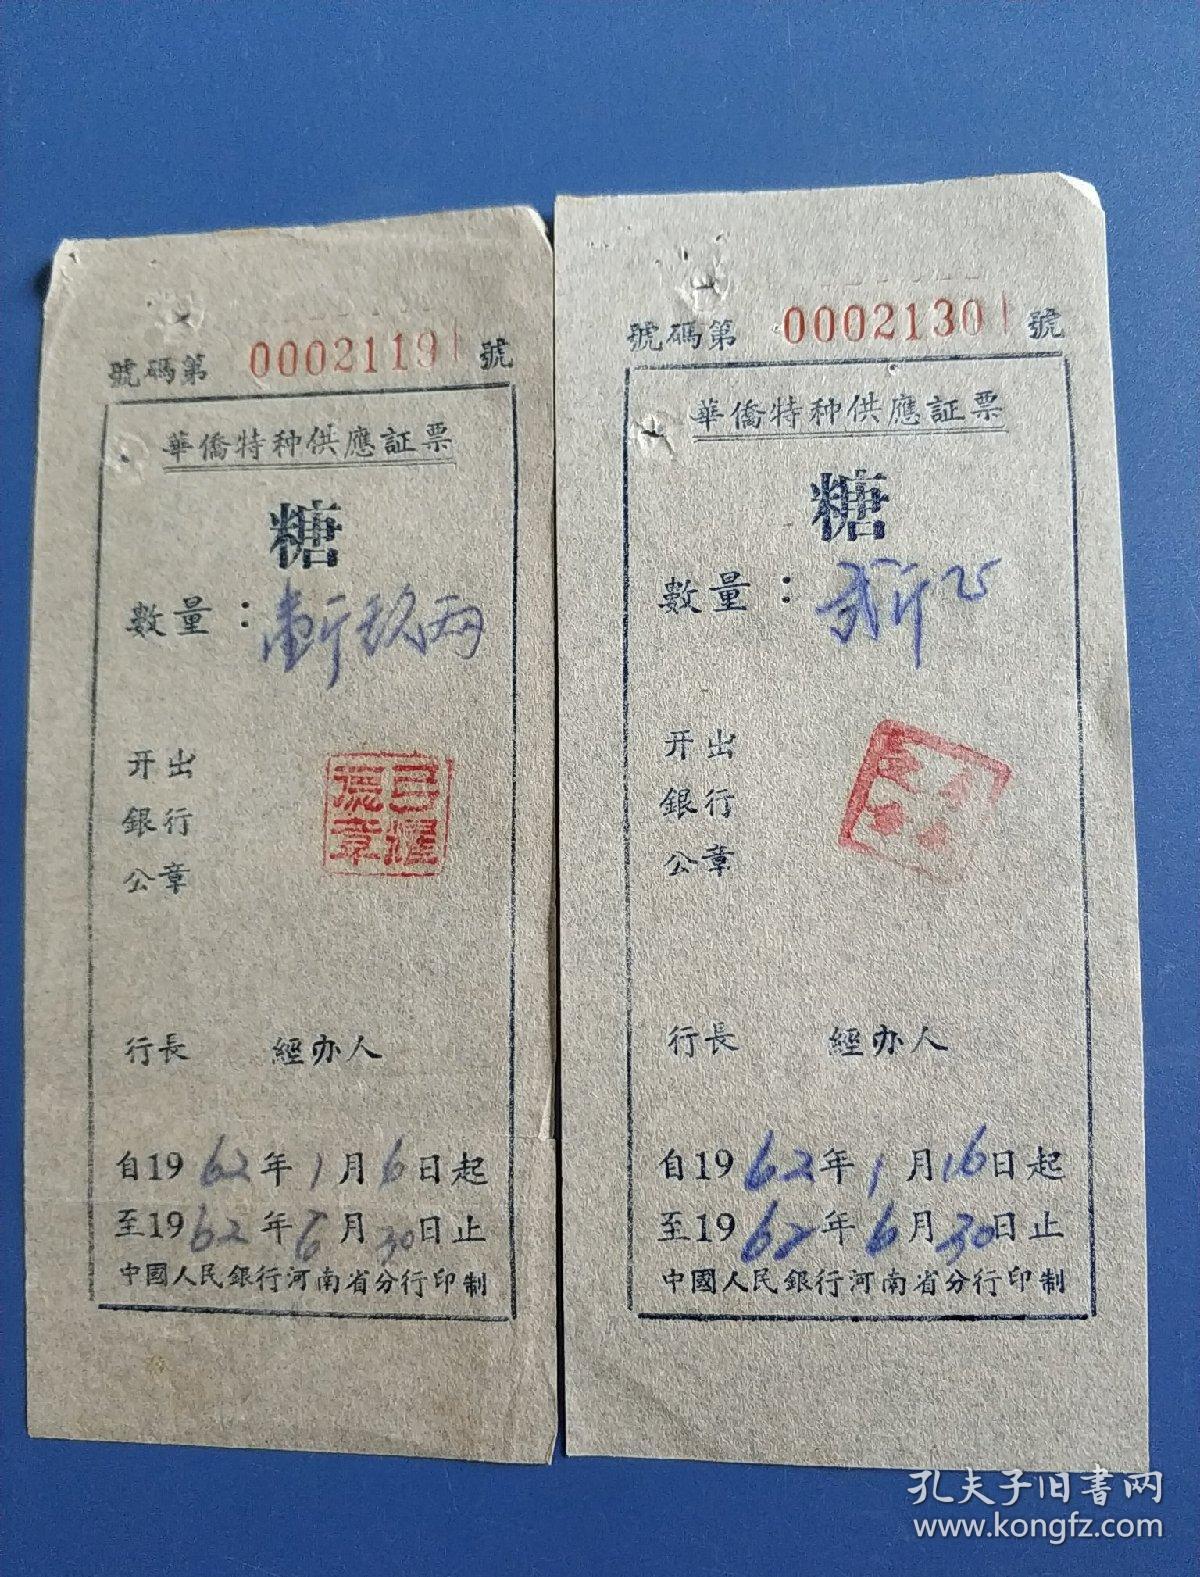 號碼第 0002119 號
華僑特种供應証票
糖
數量：壹斤玖兩
开出
銀行
公章
行長 經办人
自1962年1月6日起
至1962年6月30日止
中國人民銀行河南省分行印制
號碼第 0002130 號
華僑特种供應証票
糖
數量：貳斤
开出
銀行
公章
行長 經办人
自1962年1月16日起
至1962年6月30日止
中國人民銀行河南省分行印制
孔夫子旧書网
www.kongfz.com